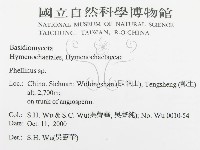 國立自然科學博物館
NATIONAL MUSEUM OF NATURAL SCIENCE
TAICHUNG, TAIWAN, R.O.CHINA
Basidiomycota
Hymenochaetales, Hymenochaetaceae
Phellinus sp.
Loc.: China. Sichuan: Wolungshan Tengsheng
alt. 2,700m;
on trunk of angiosperm.
Col.: S.H. Wu & S.C. Wu No. Wu 0010-54
Date: Oct. 11, 2000
Det.: S.H. Wu